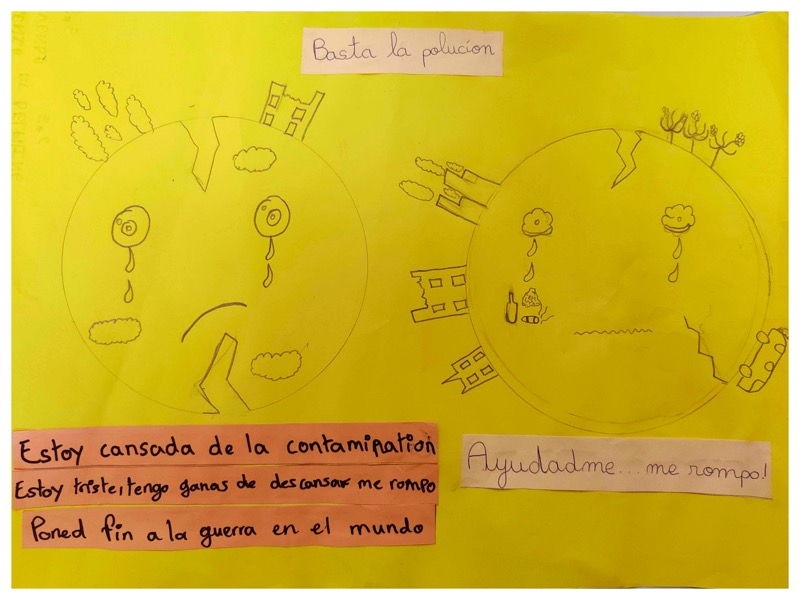 Basta la polucion
Estoy cansada de la contamination
Estoy triste, tengo ganas de descansar me rompo
Poned fin a la guerra en el mundo
Ayudadme... me rompo!